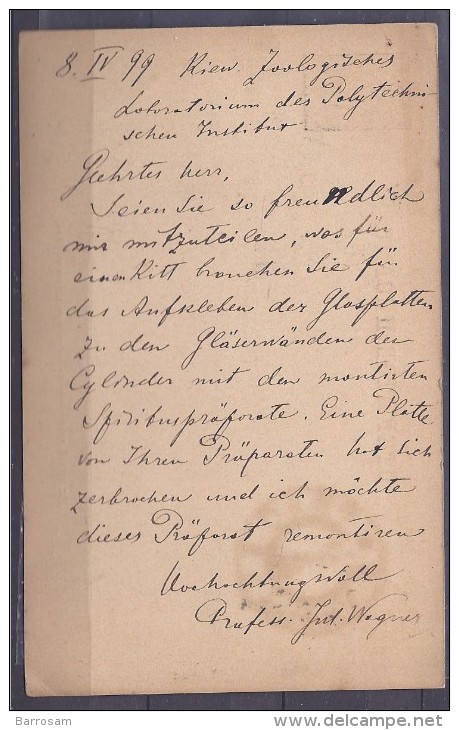 8. IV 99 Kiew. Zoologisches
Loboratorium des Polytechni-
schen Institut
Geehrtes Herr,
Seien Sie so freundlich
mir mitzuteilen, was für
einen Kitt brauchen Sie für
das Aufkleben der Glasplatten
zu den Gläserwänden der
Cylinder mit den montirten
Spirituspräparate. Eine Platte
von Ihren Präparaten hat sich
zerbrochen und ich möchte
dieses Präparat remontiren
Hochachtungsvoll
Profess. Jul. Wagner
Barrosam
www.delcampe.net